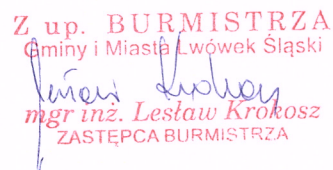 Z up. BURMISTRZA
Gminy i Miasta Lwówek Śląski
mgr inż. Lesław Krokosz
ZASTĘPCA BURMISTRZA